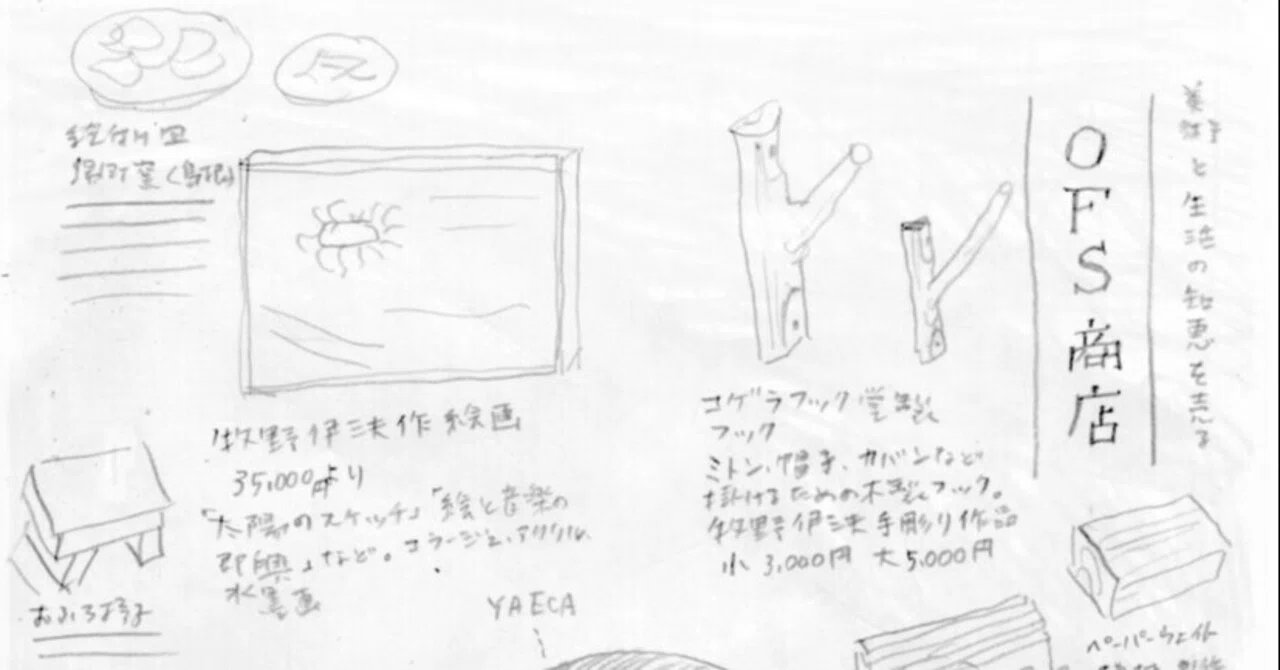 美術と生活の知恵を売る
OFS商店
絵付け皿
湯町窯(島根)
牧野伊三夫作 絵画
35,000円より
「太陽のスケッチ」「絵と音楽の
即興」など。コラージュ、アクリル、
水墨画
コゲラフック営製
フック
ミトン、帽子、カバンなど
掛けるための木製フック。
牧野伊三夫 手彫り作品
小 3,000円 大 5,000円
おふろ椅子
YAECA
ペーパーウェイト